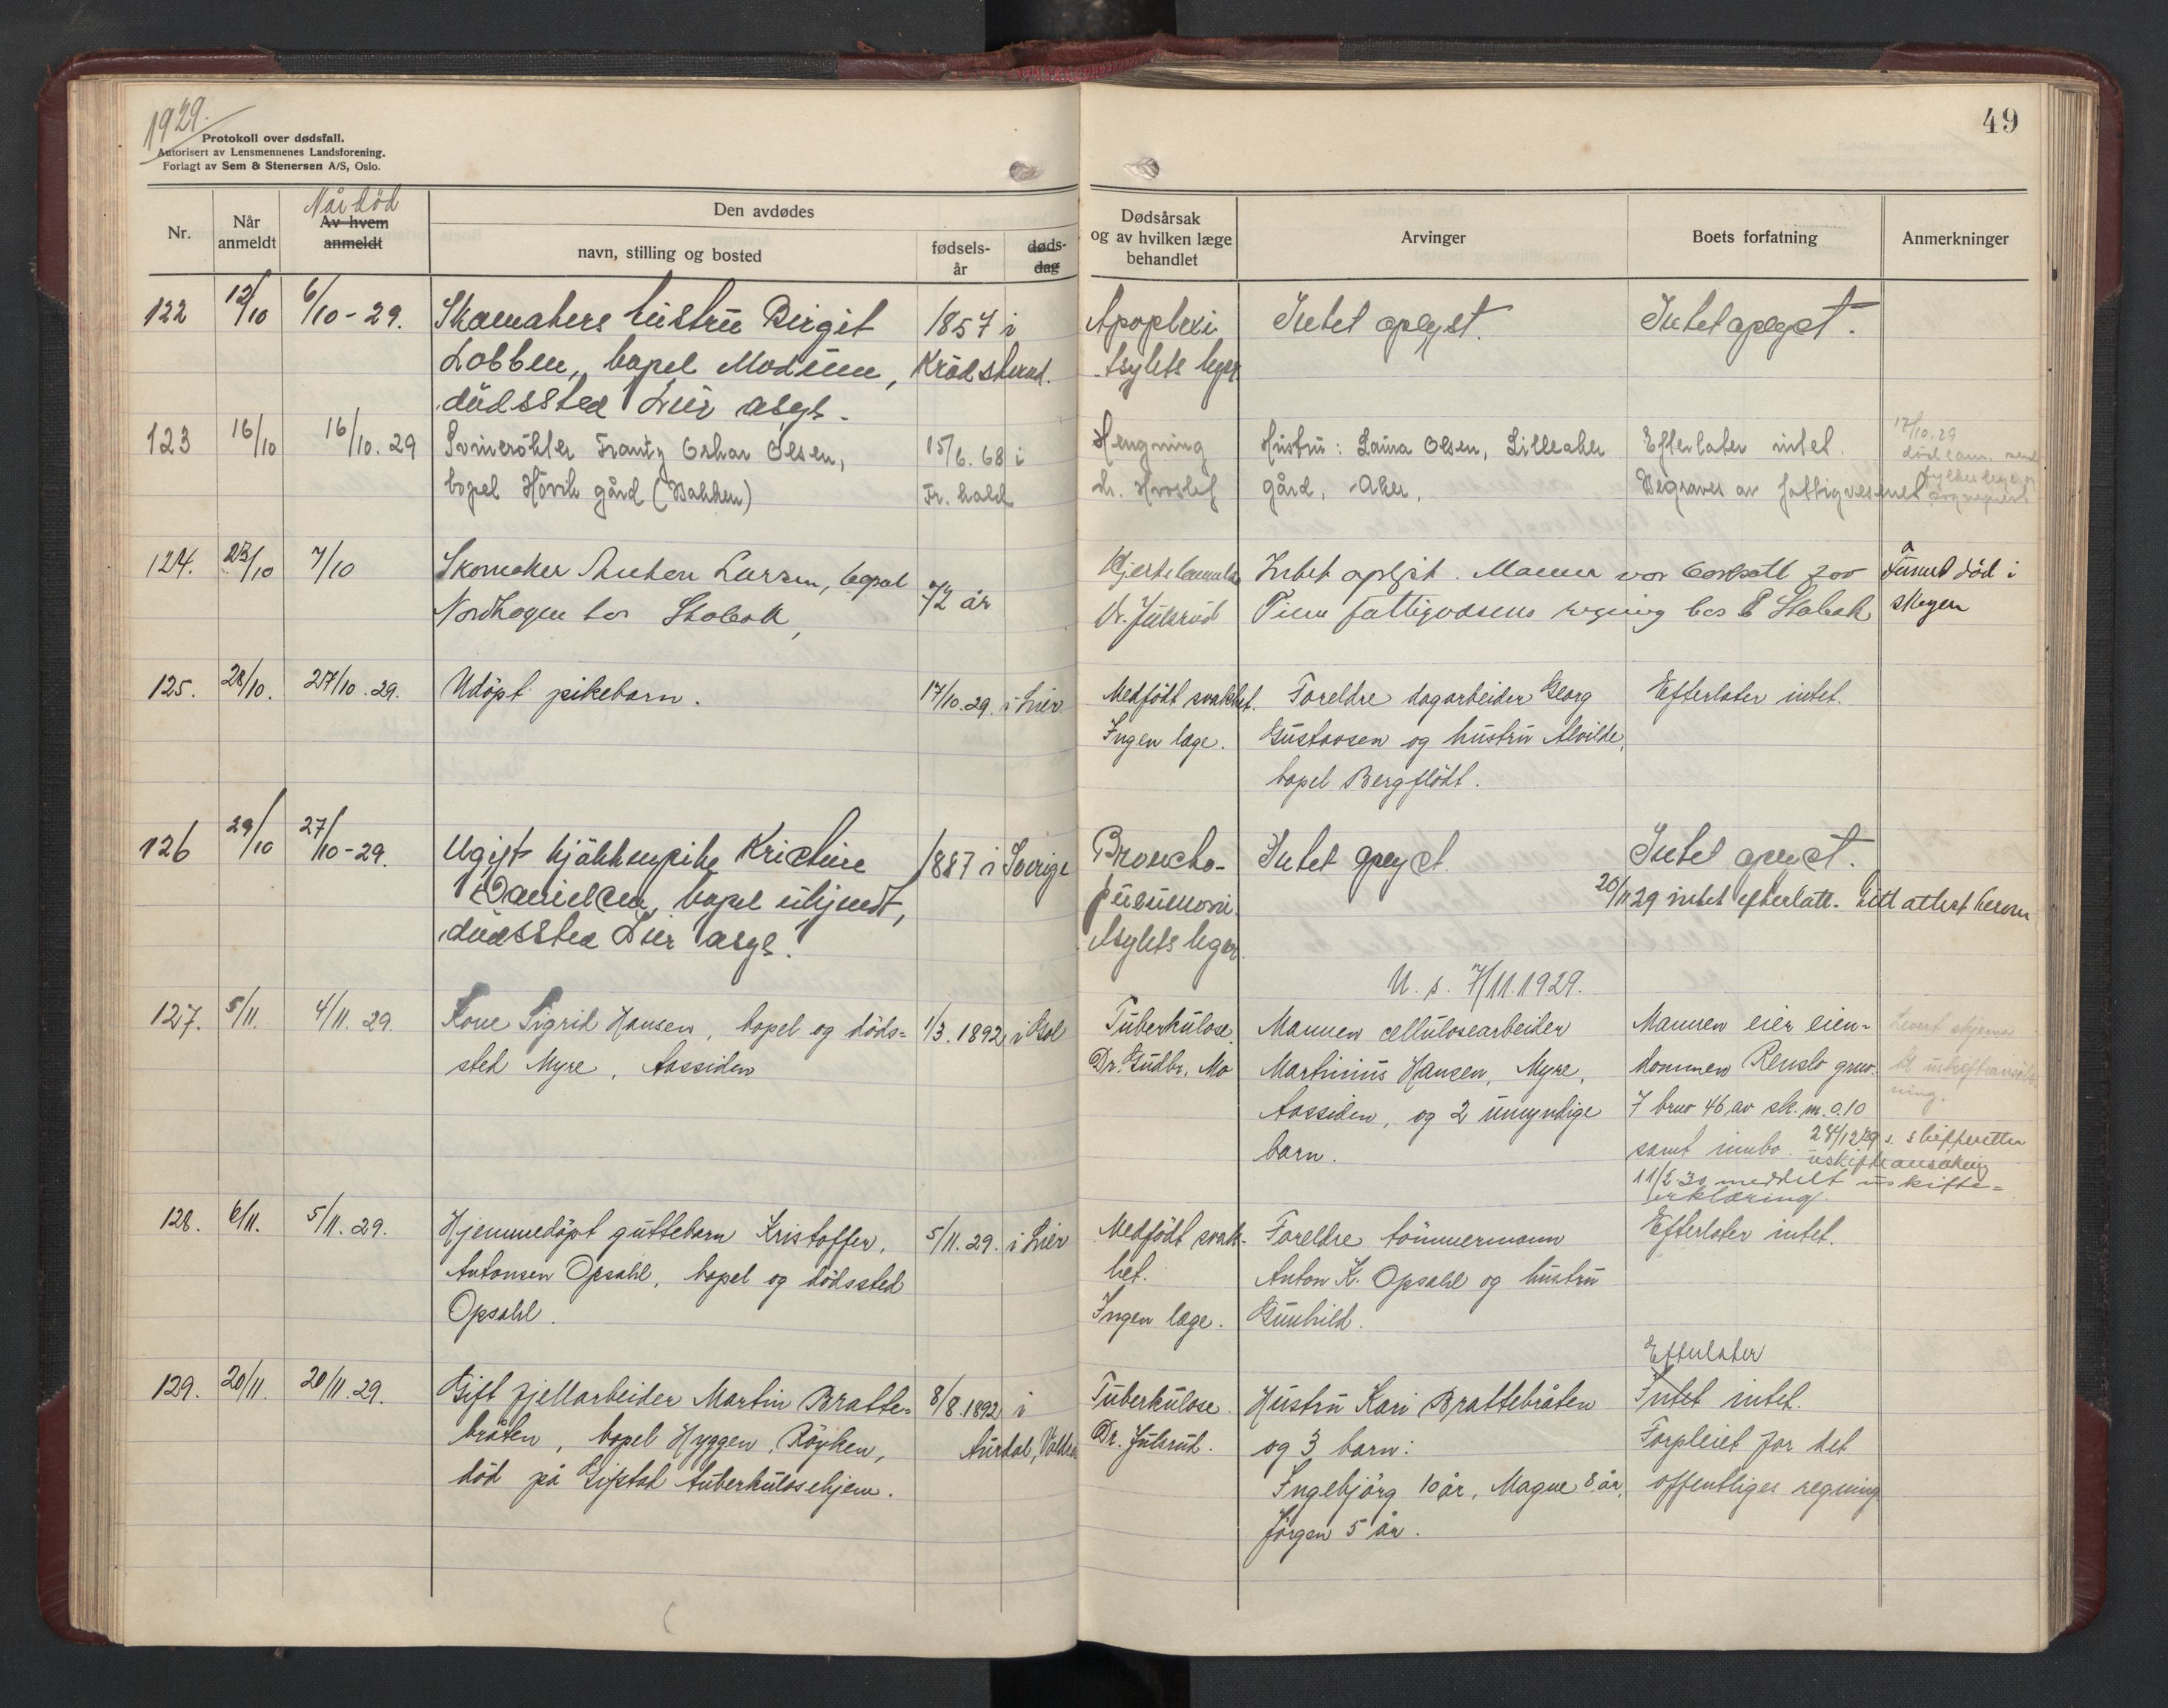 1929.
Protokoll over dødsfall.
Autorisert av Lensmennenes Landsforening.
Forlagt av Sem & Stenersen A/S, Oslo.
49
Nr.
Når anmeldt
Når död
Av hvem anmeldt
Den avdødes
navn, stilling og bosted
fødsels-år
døds-dag
Dødsårsak og av hvilken læge behandlet
Arvinger
Boets forfatning
Anmerkninger
122 12/10 6/10-29. Skomakers hustru Birgit 1857 i Apoplexi Intet oplyst. Intet oplyst.
Lobben, bopel Modum, Krödsherad. Asylets leger
dödssted Lier asyl.
123 16/10 16/10.29 Svinerökter Frantz Oskar Olsen, 15/6.68 i Hengning Hustru: Laura Olsen, Lilleaker Efterlater intet. 17/10.29
bopel Hövik gård (Bakken) Fr.hald dr. Hvoslef gård, Aker, Begraves av fattigvesenet
124. 23/10 7/10 Skomaker Anton Larsen, bopel 72 år Hjertelammelse Intet oplyst. Mannen var bortsatt for Funnet död i
Nordhagen hos Stabæk, Dr. Julsrud fattigvæsens regning hos Stabæk skogen
125. 28/10. 27/10.29. Udöpt pikebarn. 17/10.29. i Lier. Medfödt svakhet. Foreldre dagarbeider Georg Efterlater intet.
Ingen læge. Gustavsen og hustru Alvilde,
bopel Bergflödt.
126 29/10 27/10-29. Ugift kjökkenpike Kristine 1887 i Sverige Broncho- Intet oplyst. Intet oplyst.
Danielsen, bopel ukjendt, pneumoni. 20/11 29 intet efterlatt. Gitt attest herom
dödssted Lier asyl. Asylets leger.
U. s. 7/11.1929.
127. 5/11. 4/11.29. Kone Sigrid Hansen, bopel og döds- 1/3.1892 i Tuberkulose. Mannen cellulosearbeider Mannen eier eien-
sted Myre, Aassiden Dr. Gudbr. Mo Martinius Hansen, Myre, dommen Renslo gnr.
Aassiden, og 2 umyndige 7 brnr 46 av sk. m. 0.10
barn. samt innbo. 28/12 29 s. skifteretten
uskifteansökning
11/2-30 meddelt uskifte-
erklæring.
128. 6/11. 5/11.29. Hjemmedöpt guttebarn Kristoffer, 5/11.29. i Lier Medfödt svak- Foreldre tömmermann Efterlater intet.
Antonsen Opsahl, bopel og dödssted het. Anton K. Opsahl og hustru
Opsahl. Ingen læge. Gunhild.
Efterlater
129. 20/11. 20/11.29. Gift fjellarbeider Martin Bratte- 8/8.1892 i Tuberkulose. Hustru Kari Brattebråten Intet intet.
bråten, bopel Hyggen, Röyken, Aurdal, Valdres Dr. Julsrud. og 3 barn: Forpleiet for det
död på Gifstad tuberkulosehjem. Ingebjörg 10 år, Magne 8 år, offentliges regning
Jörgen 5 år.